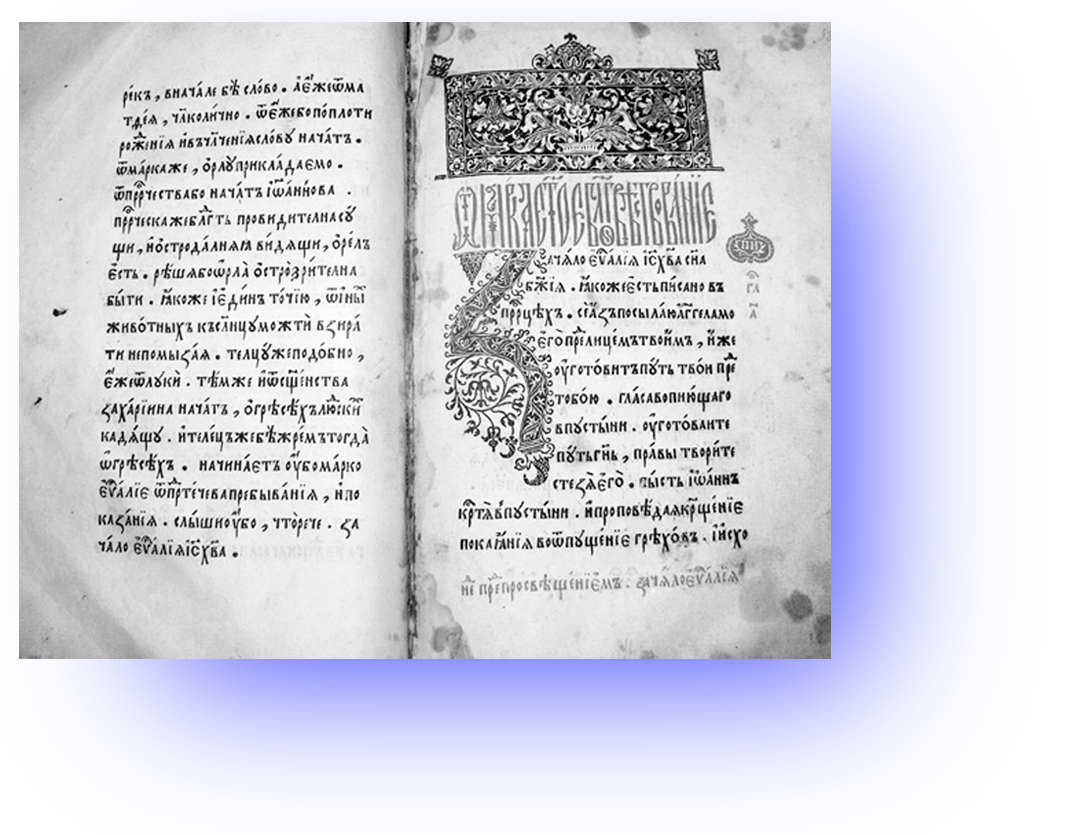 ре́къ, внача́ле бѣ̀ сло́во. а҆є҆́же ѿ ма
тѳе́я, чл҃коли́чно. ѿ є҆́же бо по плоти
рож̾е́нїѧ и҆ въчл҃че́нїѧ сло́вꙋ нача́тъ.
ѿ ма́рка же, ѻ҆рлꙋ̀ прикла́даємо.
ѿ прⷪ҇рчества бо нача́тъ і҆ѡа́ннова.
прⷪ҇рческа же бл҃года́ть провидителна сꙋ́
щи, и҆ ѻ҆строда́лнаѧ ви́дѧщи, ѻ҆ре́лъ
є҆́сть. рѣ́шѧ бо ѻ҆рла̀ ѻ҆строꙁри́телна
бы́ти. ꙗ҆́коже і҆ є҆ди́нъ то́чїю, ѿ и҆ны́
живо́тныхъ къ сл҃нцꙋ мо́жть вꙁира́
ти непомыꙁа́ѧ. телцꙋ́ же подо́бно,
є҆́же ѿ лꙋкѝ. тѣ́мже и҆ ѿ сщ҃е́нства
ꙁаха́рїина нача́тъ, ѻ҆ грѣсѣ́хъ лю́скїи
кадѧ́щꙋ. и҆ теле́цъ же бѣ̀ жре́мъ тогда̀
ѡ҆ грѣсѣ́хъ. начина́єтъ ᲂу҆́бо ма́рко
є҆ѵⷢ҇а́лїє ѿ прⷣте́чева пребыва́нїѧ, и҆ по
каꙁа́нїѧ. слы́ши ᲂу҆́бо, что̀ рече. ꙁа
ча́ло є҆ѵⷢ҇а́лїѧ і҆сх҃ва.
ꙁача́ло є҆ѵⷢ҇а́лїѧ і҆сх҃ва сн҃а
бж҃їѧ. ꙗ҆́коже є҆́сть пи́сано въ
прⷪ҇рцѣхъ. се а҆́ꙁъ посыла́ю а҆́гг҃ела мо
є҆го̀ пре лице́мъ твои́мъ, и҆́же
ᲂу҆гото́витъ пꙋ́ть тво́и пре
тобо́ю. гла́са вопию́щаго
в пꙋсты́ни. ᲂу҆гото́ваите
пꙋ́ть гн҃ь, пра́вы твори́те
стеꙁѧ̀ є҆гѡ̀. бы́сть і҆ѡа́ннъ
кр҃тѧ̀ в пꙋсты́ни. и҆ проповѣ́даѧ крⷳ҇щенїє
покаꙗ́нїѧ во ѿпꙋще́нїє грѣхо́въ. і҆ и҆схо
не пре просвѣще́нїємъ. ꙁача́ло є҆ѵⷢ҇а́лїѧ